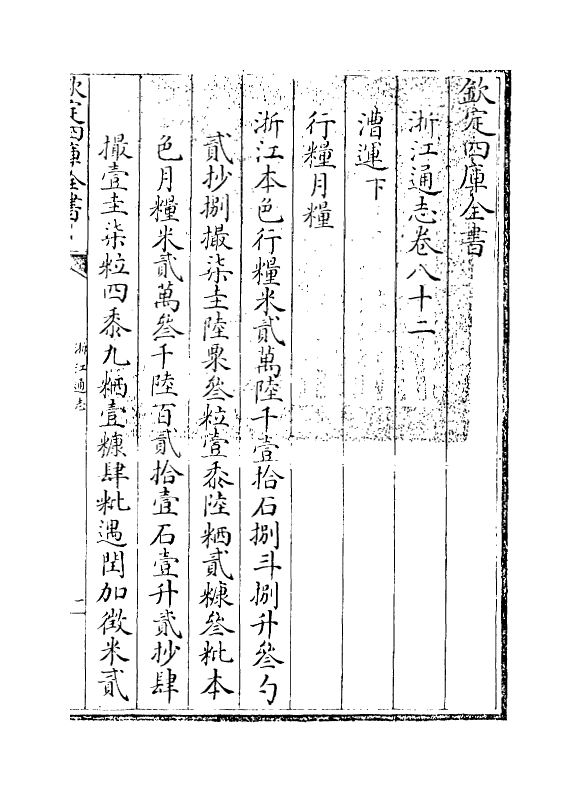 欽定四庫全書
浙江通志卷八十二
漕運下
行糧月糧
浙江本色行糧米貳萬陸千壹拾石捌斗捌升叄勺
貳抄捌撮柒圭陸粟叄粒壹黍陸粞貳糠叄粃本
色月糧米貳萬叄千陸百貳拾壹石壹升貳抄肆
撮壹圭柒粒四黍九粞壹糠肆粃遇閏加徵米貳
欽定四庫全書
浙江通志